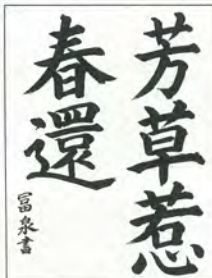 芳草惹
春還
冨泉書